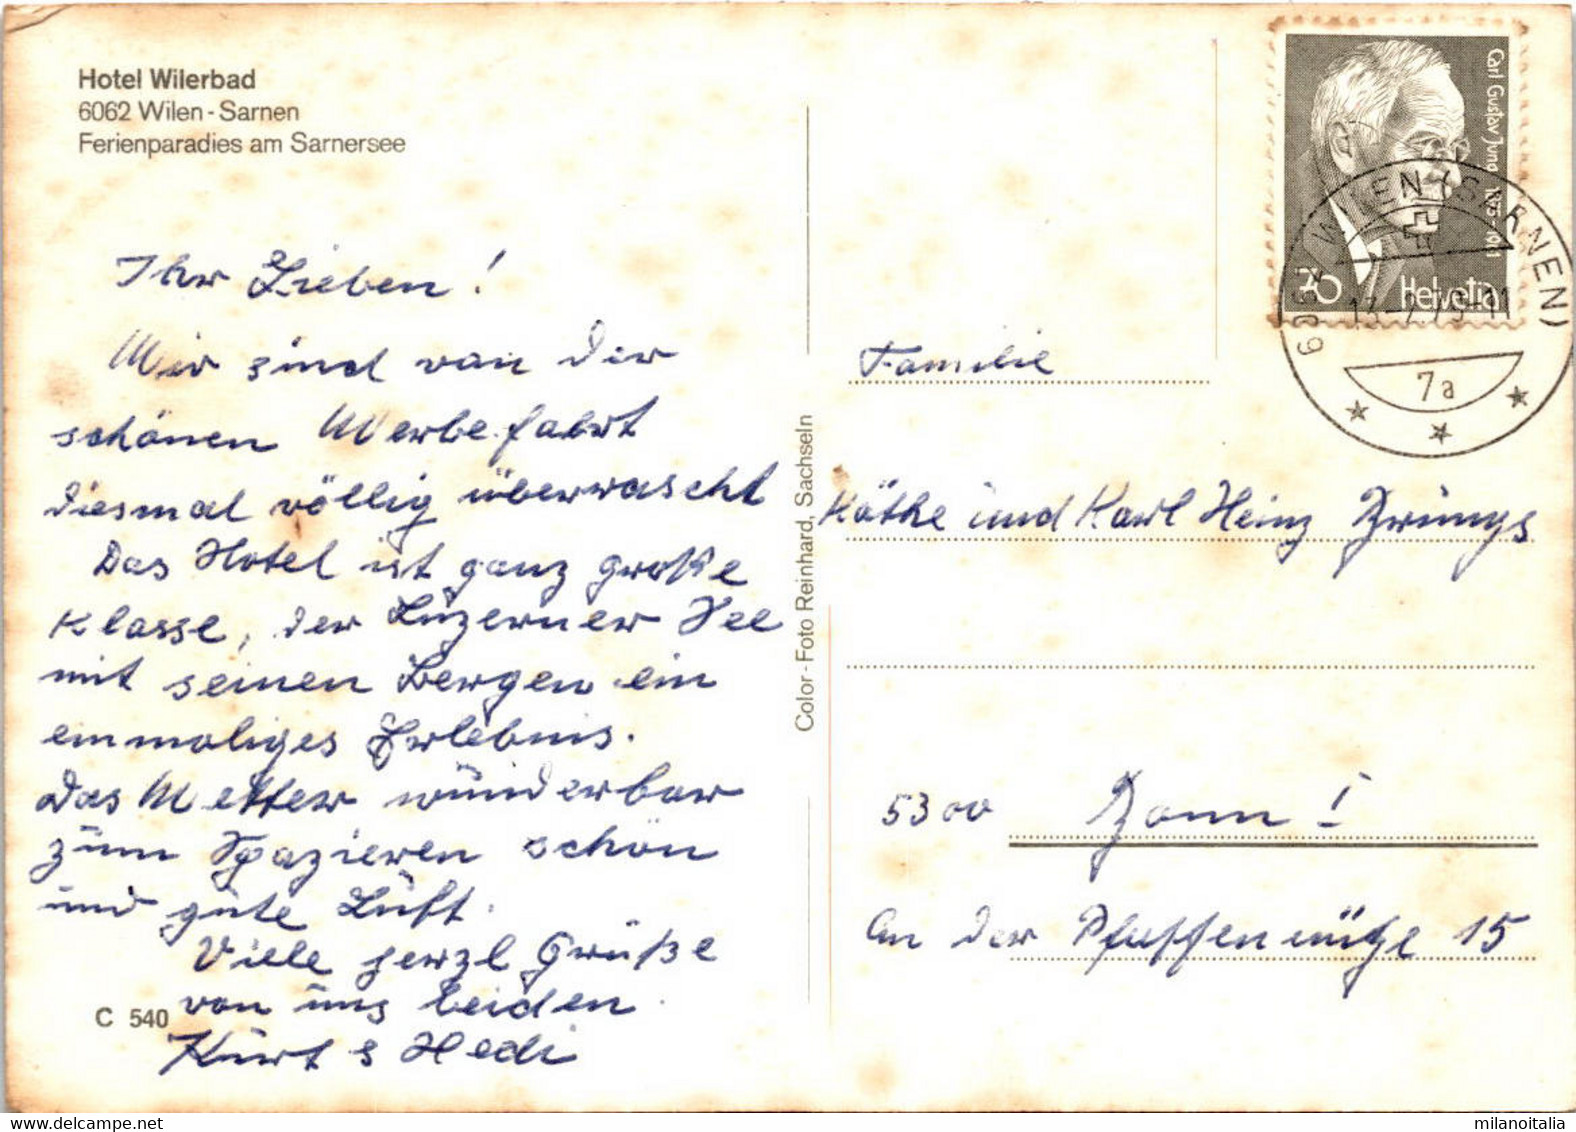 Hotel Wilerbad
6062 Wilen-Sarnen
Ferienparadies am Sarnersee
Ihr Lieben!
Wir sind von der
schönen Werbefahrt
diesmal völlig überrascht
Das Hotel ist ganz große
Klasse, der Luzerner See
mit seinen Bergen ein
einmaliges Erlebnis.
Das Wetter wunderbar
zum Spazieren schön
und gute Luft.
Viele herzl Grüße
von uns beiden.
Kurt & Hedi
C 540
Color-Foto Reinhard, Sachseln
Carl Gustav Jung 1875-1961
70 Helvetia
WILEN (SARNEN)
7a
Familie
Käthe und Karl Heinz
5300 Bonn 1
An der 15
milanoitalia